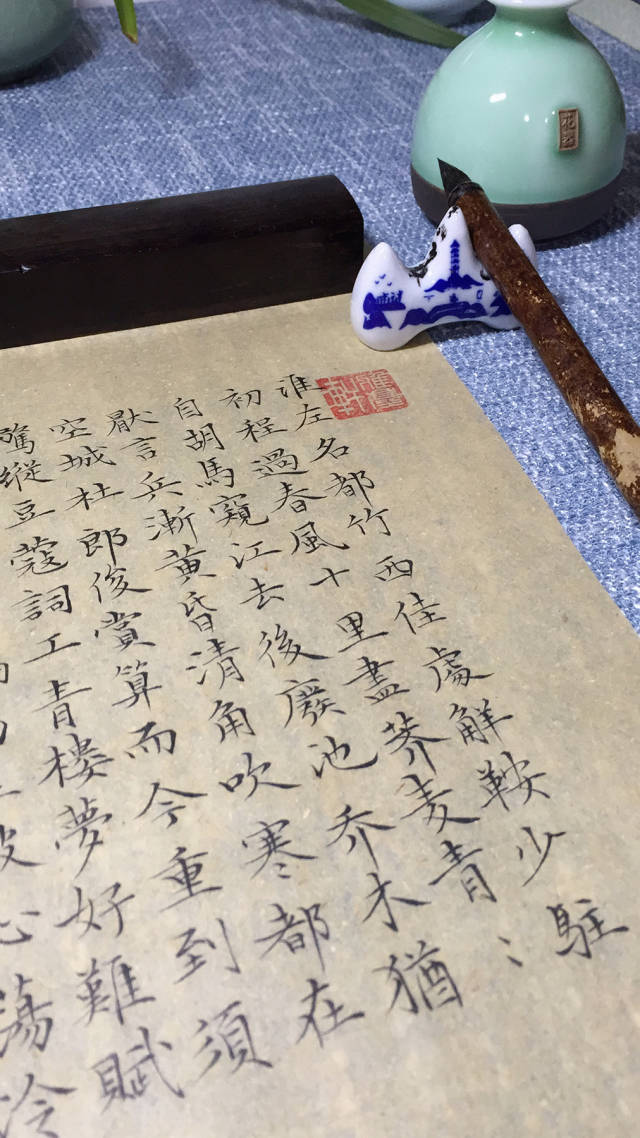 淮左名都竹西佳處解鞍少駐
初程過春風十里盡荠麦青〻
自胡馬窺江去後廢池乔木猶
厭言兵漸黄昏清角吹寒都在
空城杜郎俊賞算而今重到須
驚縱豆蔻詞工青樓夢好難賦
波心蕩冷